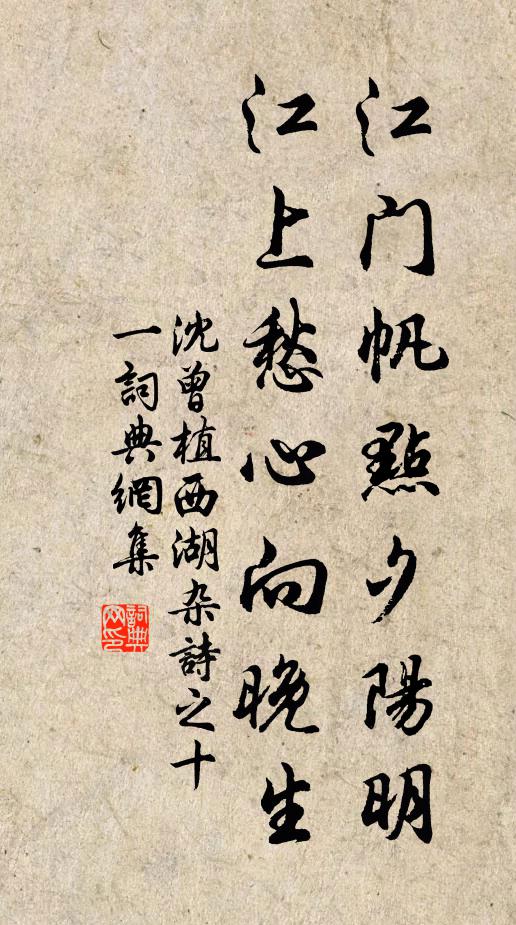 江门帆點夕陽明
江上愁心向晚生
沈曾植西湖杂詩之十
一詞典網集
詞典网印